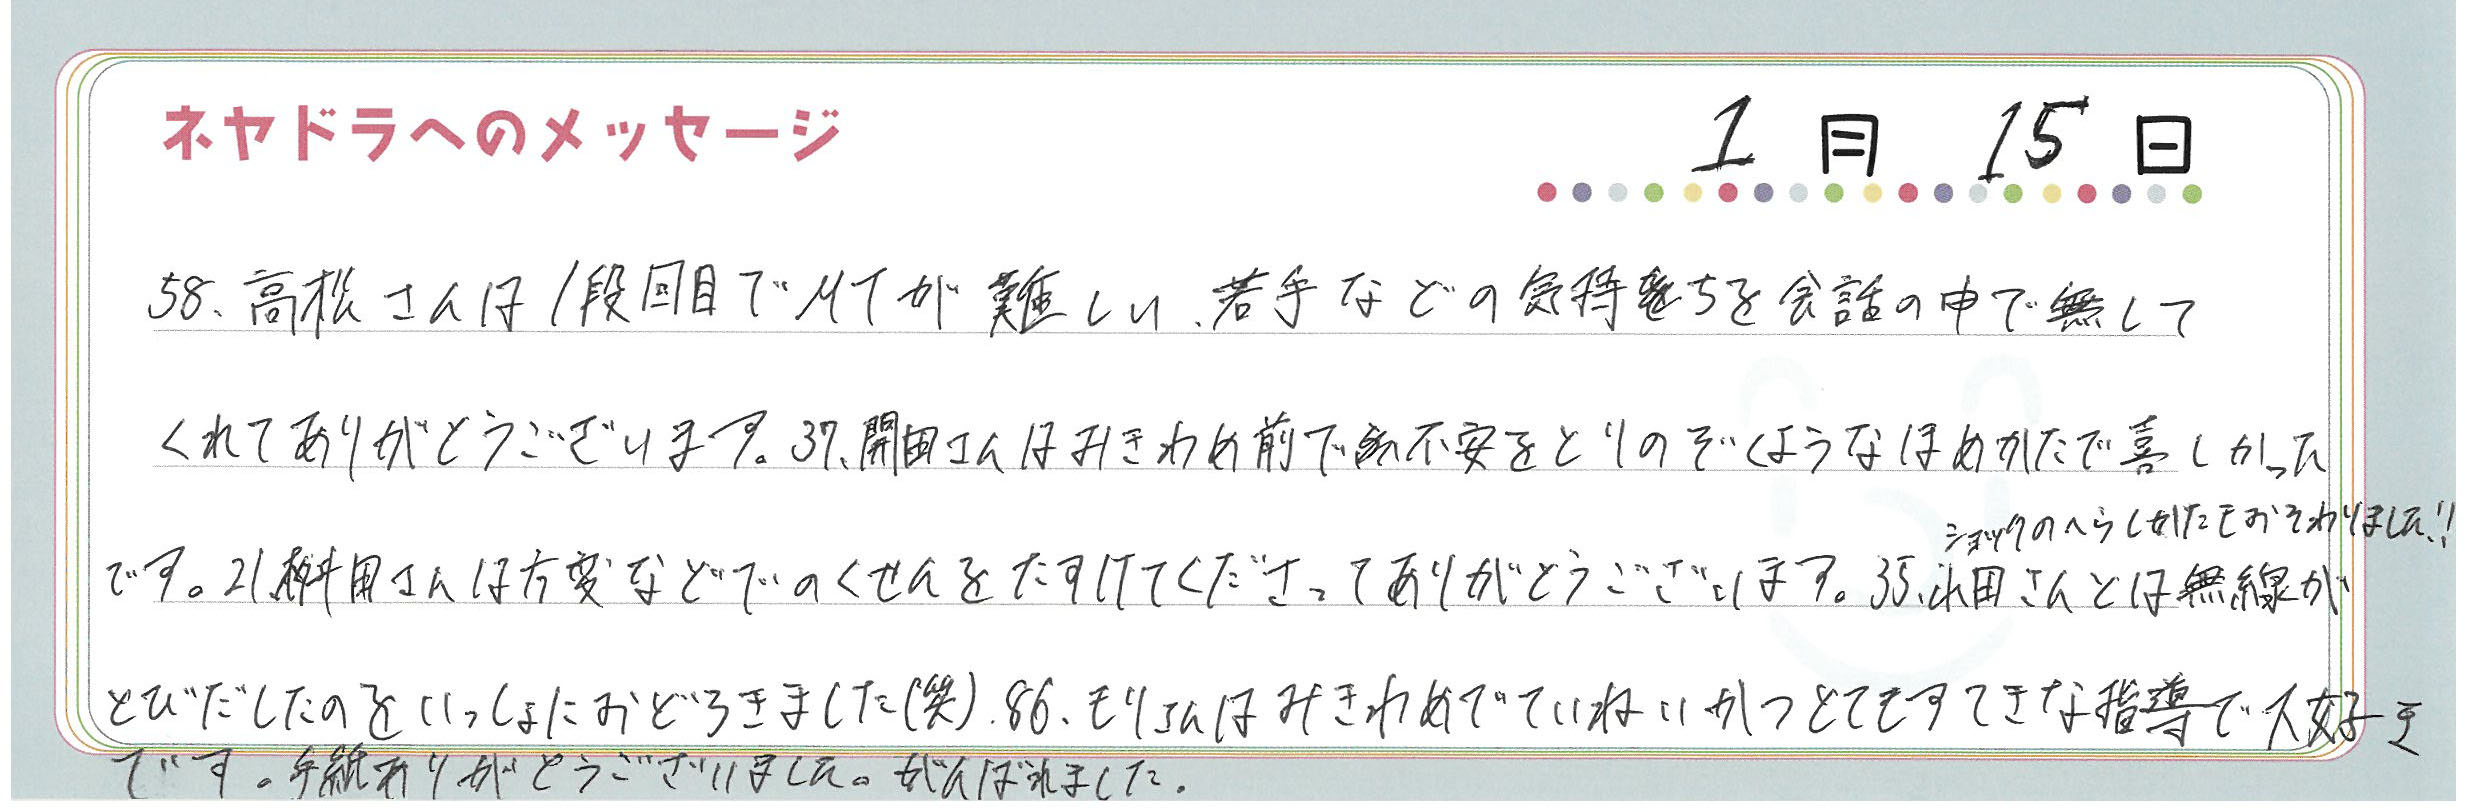 ネヤドラへのメッセージ
1月 15日
58、高松さんは1段回目でMTが難しい、若手などの気持ちを会話の中で無して
くれてありがとうございます。37、開田さんはみきわめ前で不安をとりのぞくようなほめかたで喜しかった
ショックのへらしかたもおそわりました!!
です。21、桝田さんは方変などでのくせんをたすけてくださってありがとうございます。35、永田さんとは無線が
とびだしたのをいっしょにおどろきました(笑)、86、もりさんはみきわめでていねいかつとてもすてきな指導で大好き
です。手紙ありがとうございました。がんばれました。